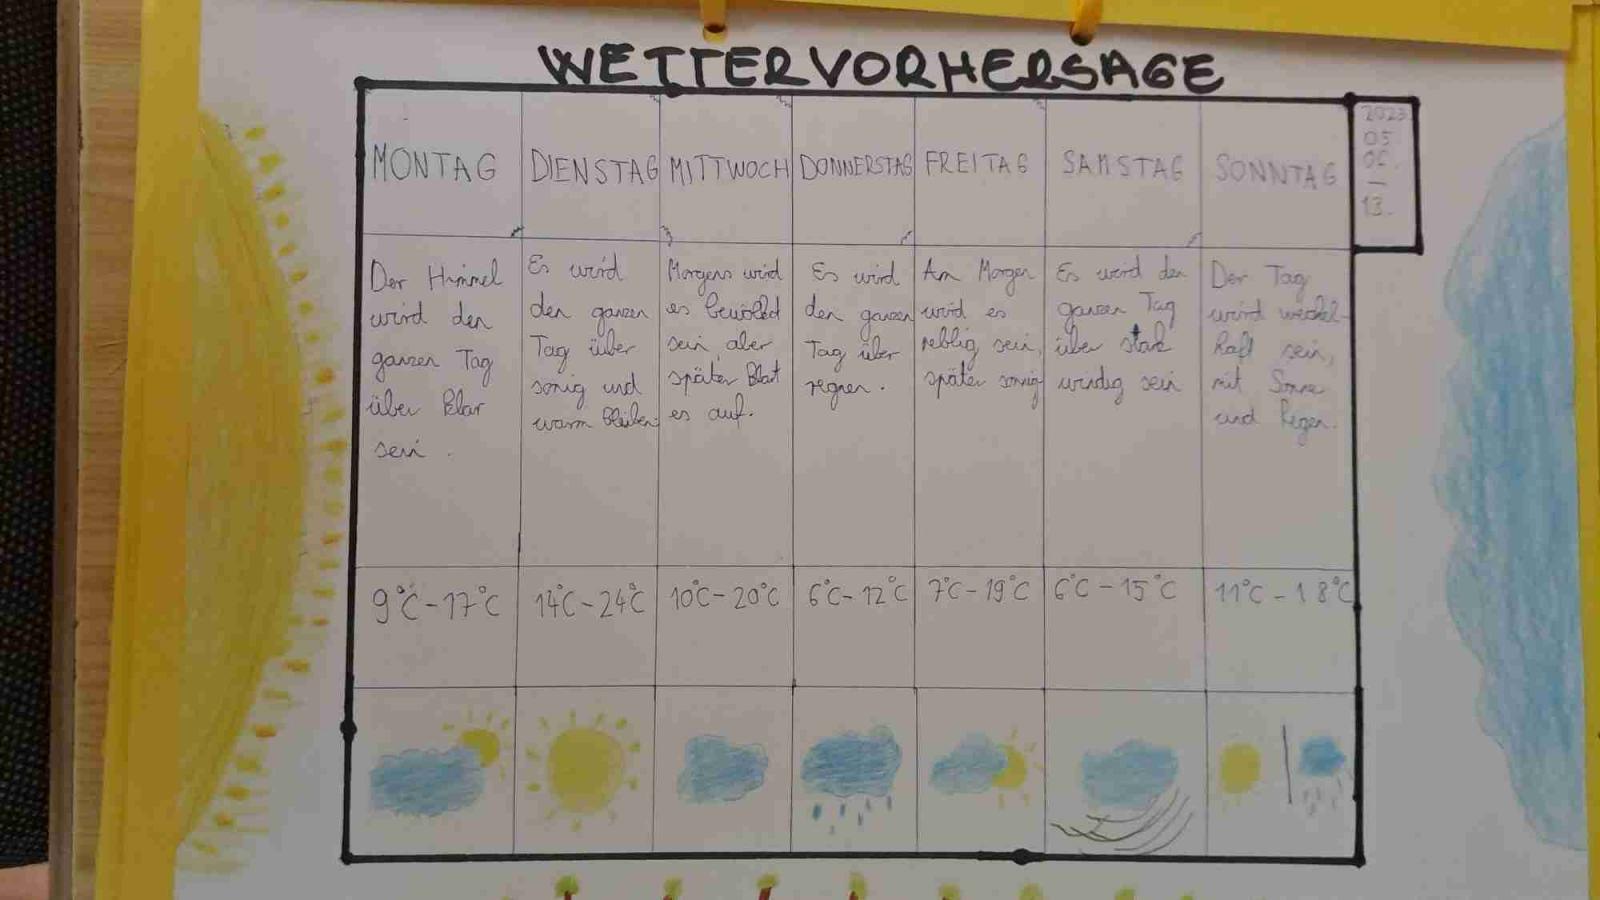 WETTERVORHERSAGE
MONTAG
DIENSTAG
MITTWOCH
DONNERSTAG
FREITAG
SAMSTAG
SONNTAG
2023
05
06.
—
13.
Der Himmel
wird den
ganzen Tag
über klar
sein.
Es wird
den ganzen
Tag über
sonig und
warm bleiben
Morgens wird
es bewölkt
sein, aber
später klart
es auf.
Es wird
den ganzen
Tag über
regnen.
Am Morgen
wird es
neblig sein,
später sonnig
Es wird den
ganzen Tag
über stark
windig sein
Der Tag
wird wechel-
haft sein,
mit Sonne
und Regen.
9°C-17°C
14°C-24°C
10°C-20°C
6°C-12°C
7°C-19°C
6°C-15°C
11°C-18°C